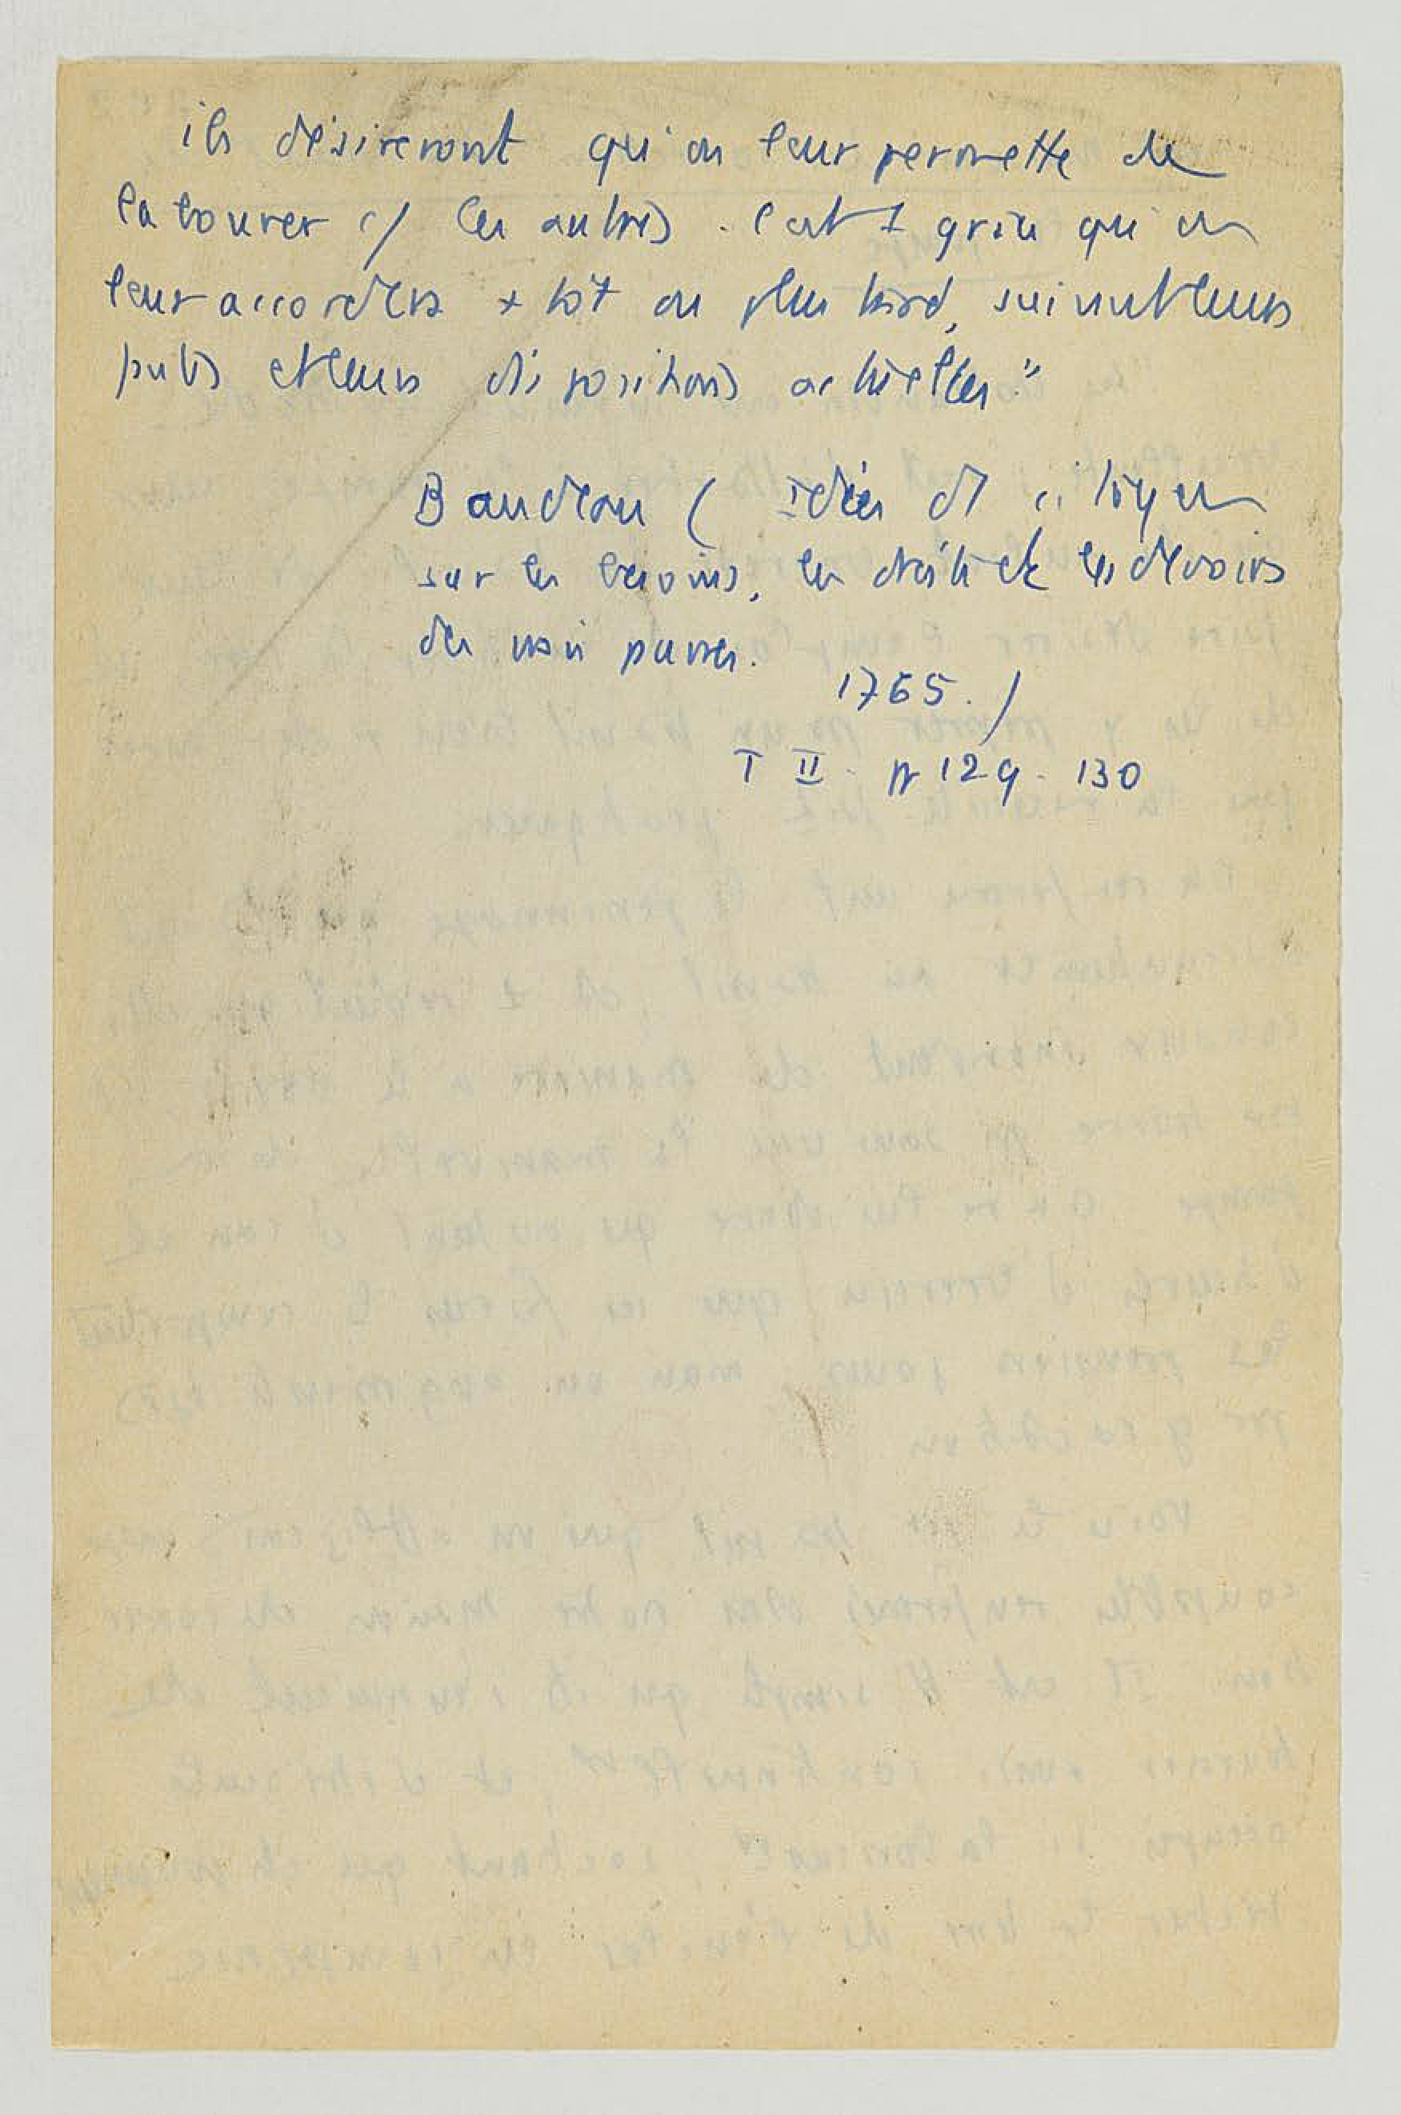 ils désireront qu'on leur permette de
labourer c/ les autres. C'est 1 grâce qu'on
leur accordera + tôt ou plus tard, suivant leurs
et leurs dispositions actuelles"
Baudeau ( Idées d'1 citoyen
sur les besoins, les droits et les devoirs
des vrais pauvres.
1765. )
T II. pp 129-130